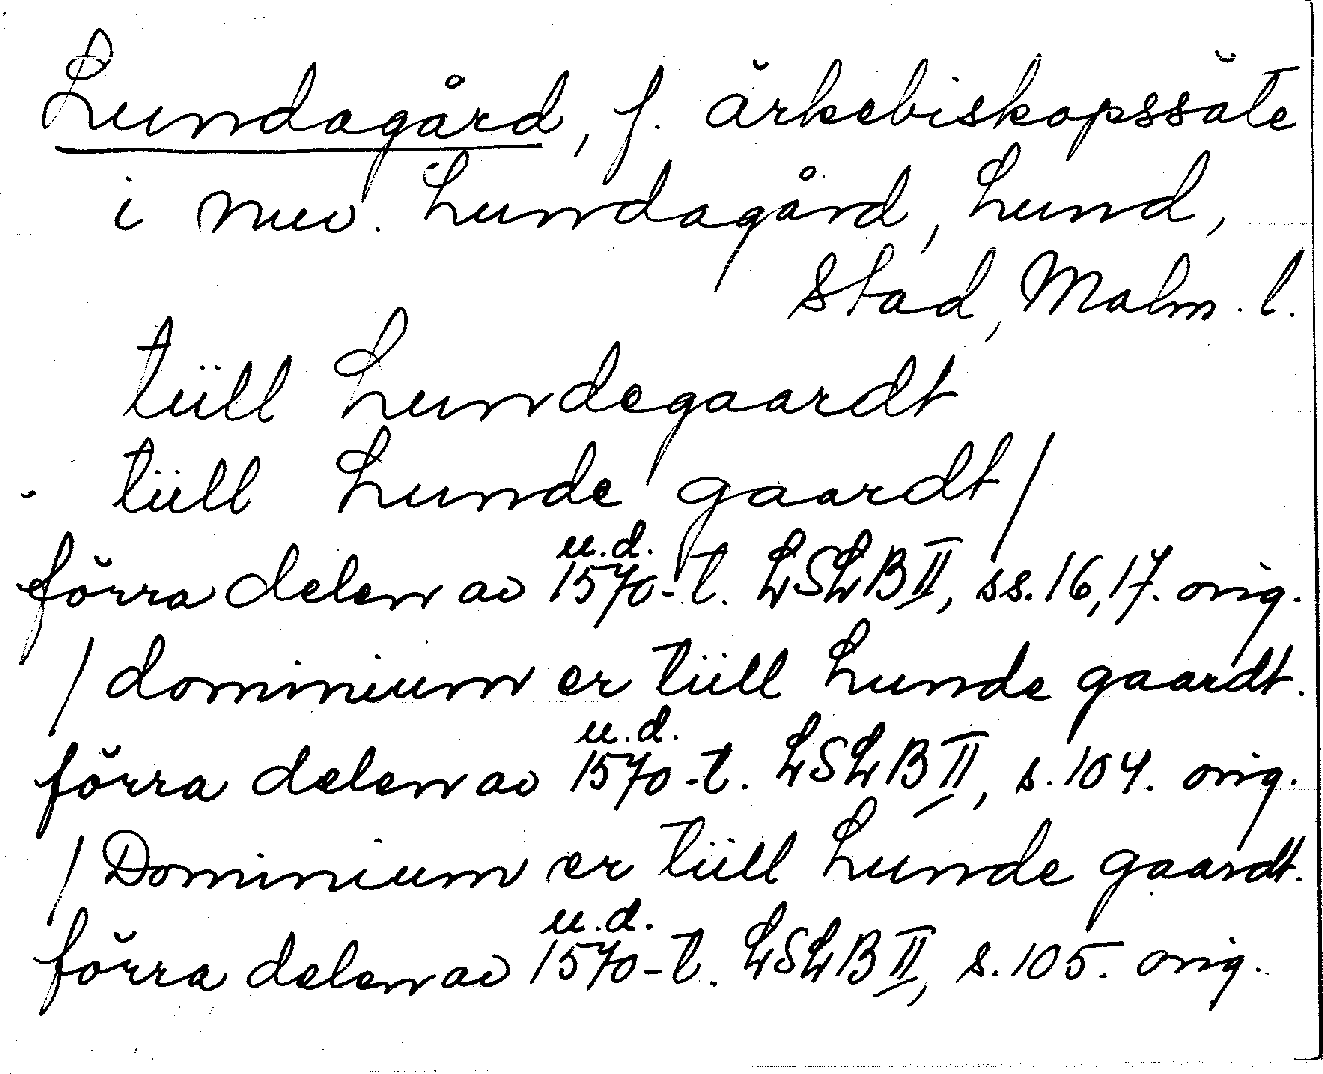 Lundagård, f. ärkebiskopssäte
i nuv. Lundagård, Lund,
stad, Malm. l.
tüll Lundegaardt
tüll Lunde gaardt/
u.d.
förra delen av 1570-t. LSLB II, ss. 16, 17. orig.
/dominium er tüll Lunde gaardt.
u.d.
förra delen av 1570-t. LSLB II, s. 104. orig.
/Dominium er tüll Lunde gaardt.
u.d.
förra delen av 1570-t. LSLB II, s. 105. orig.